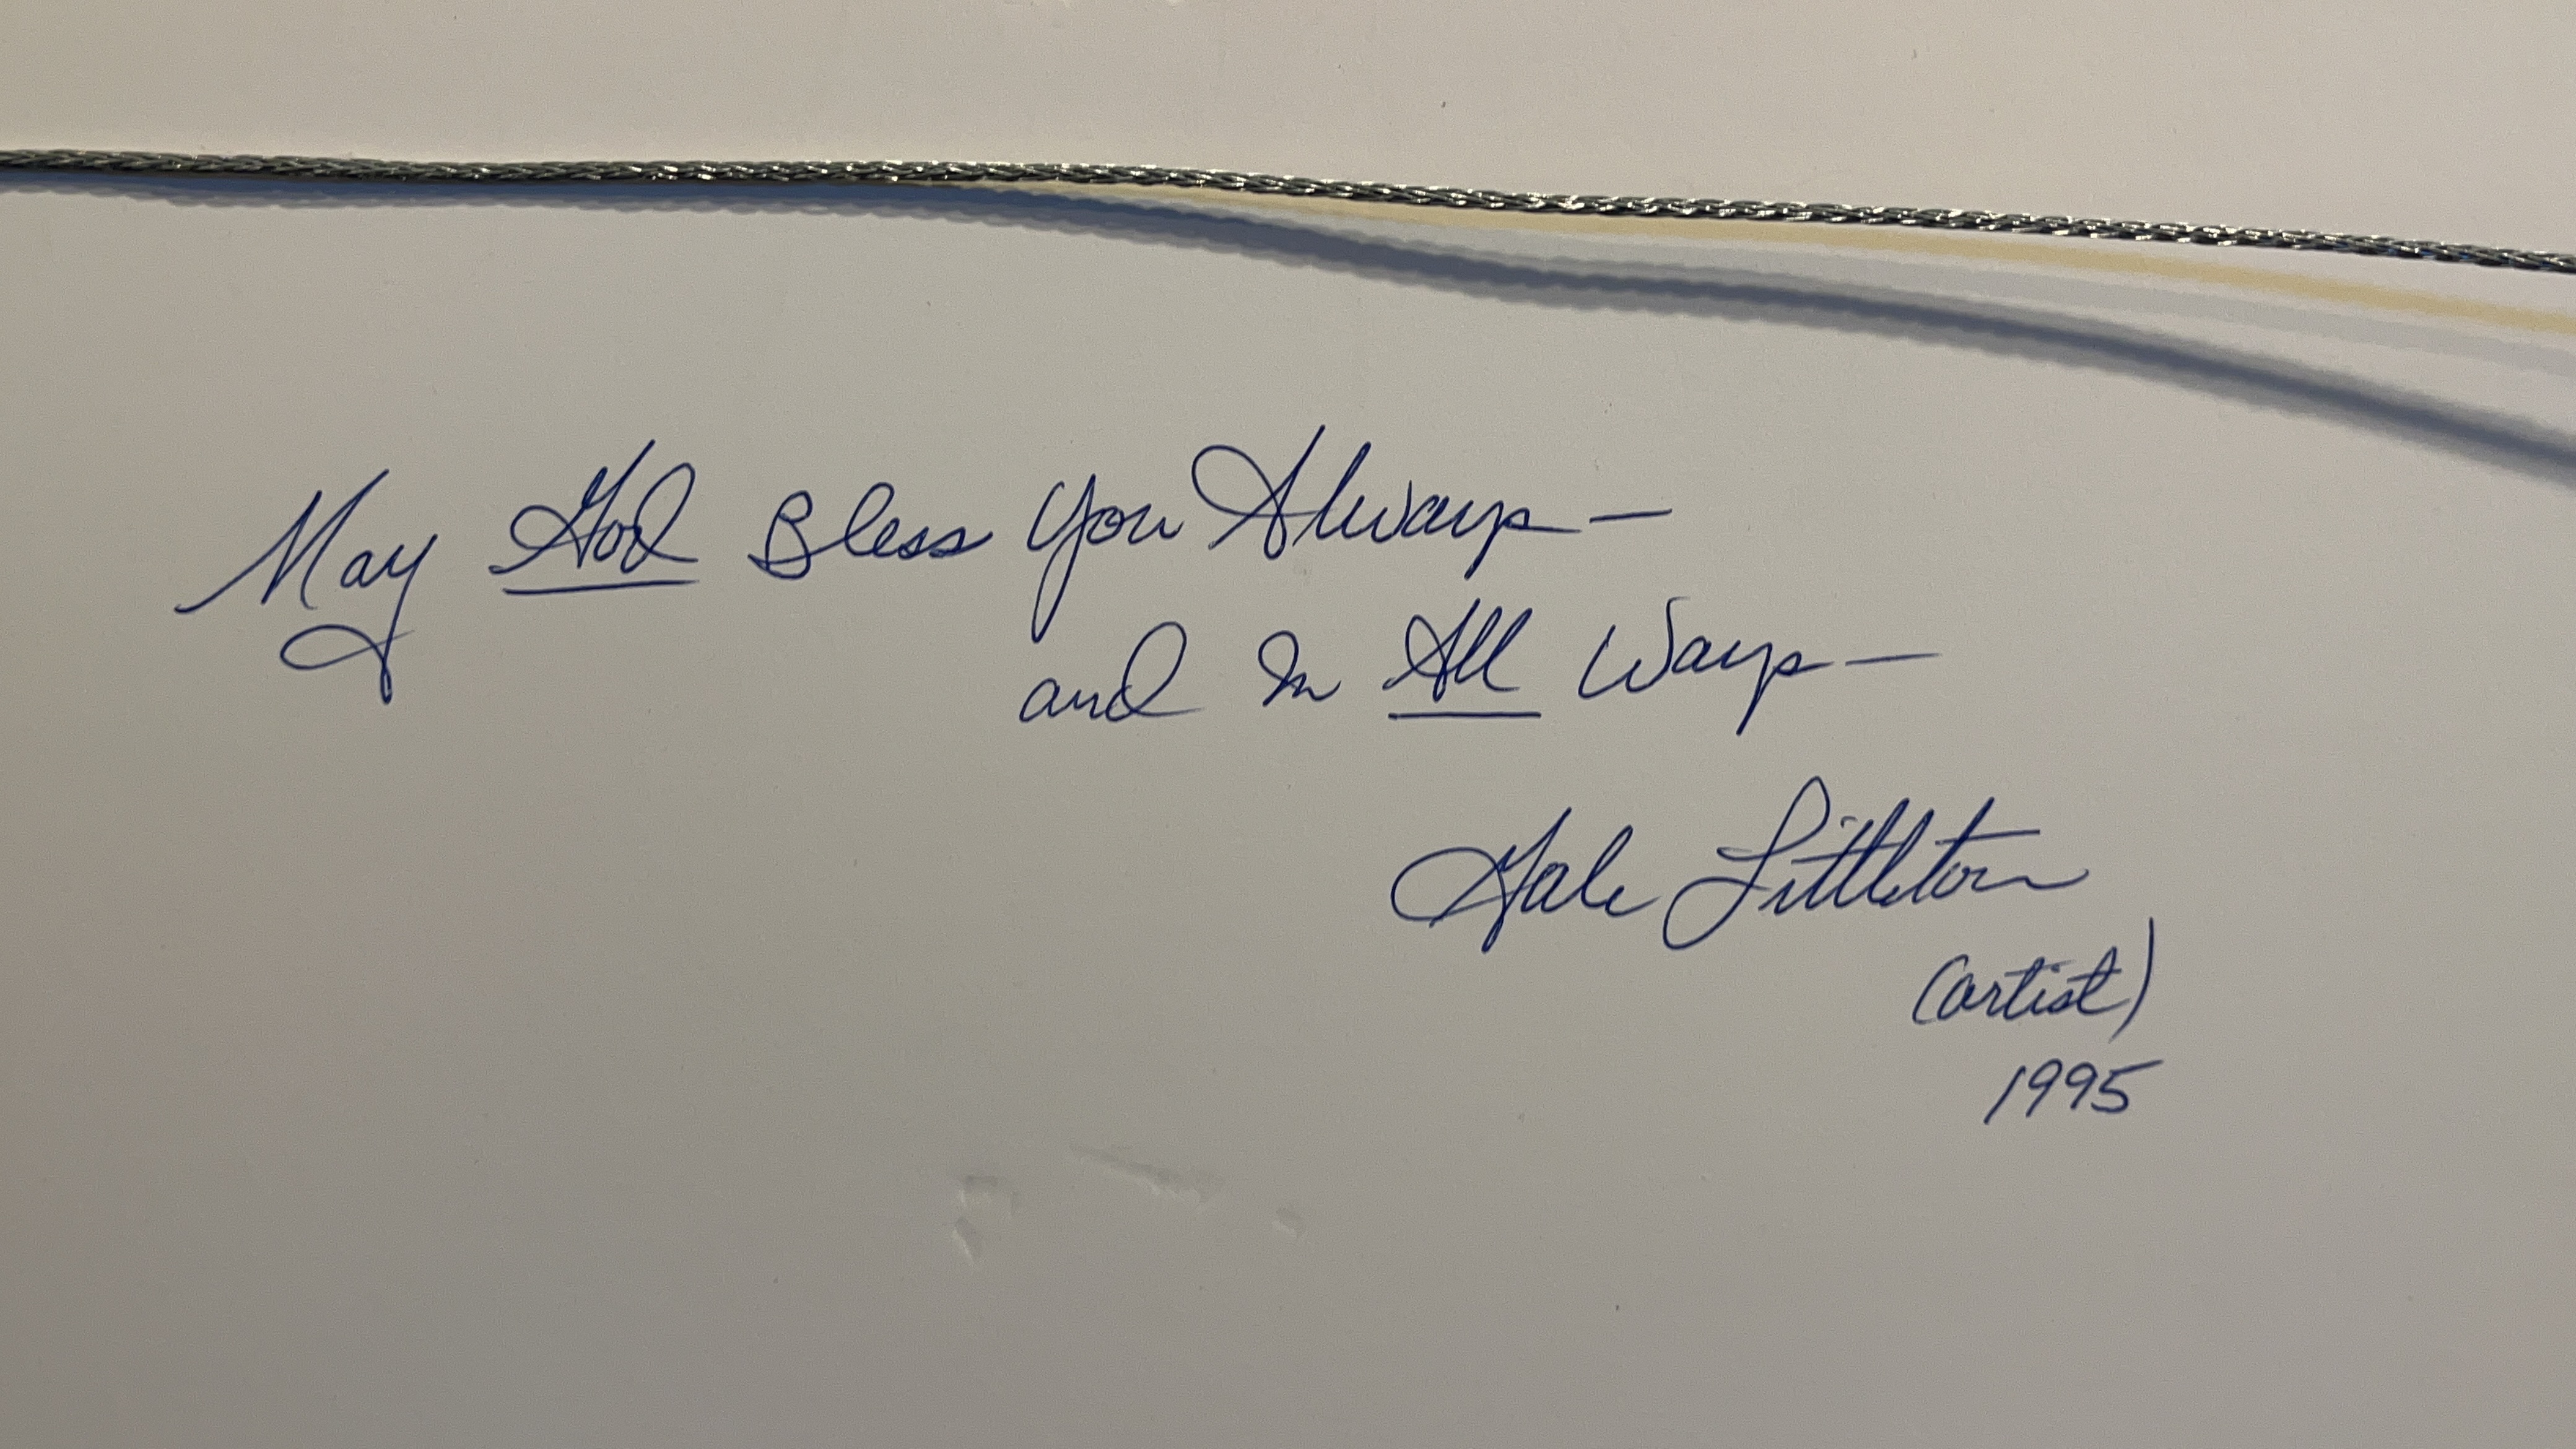 May God Bless You Always—
and In All Ways—
Gale Littleton
(artist)
1995